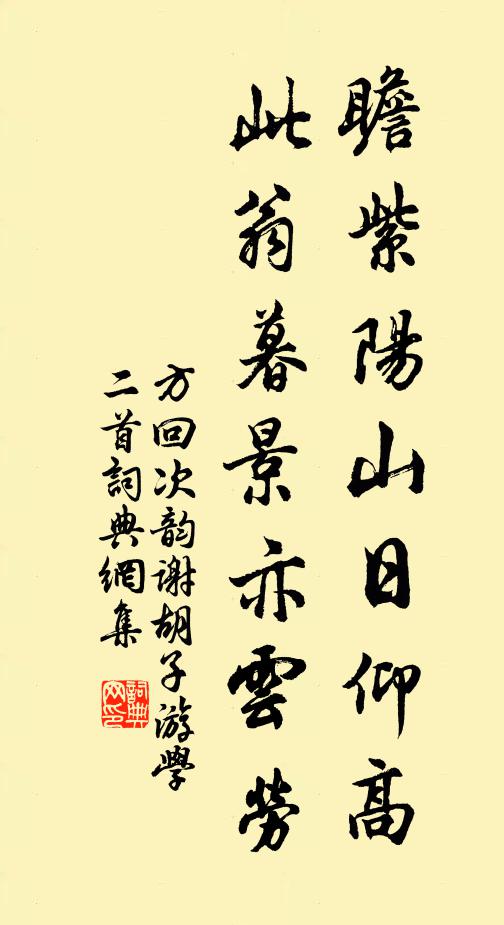 瞻紫陽山日仰高
此翁暮景亦雲勞
方回次韵謝胡子游學
二首詞典網集
詞典
网印